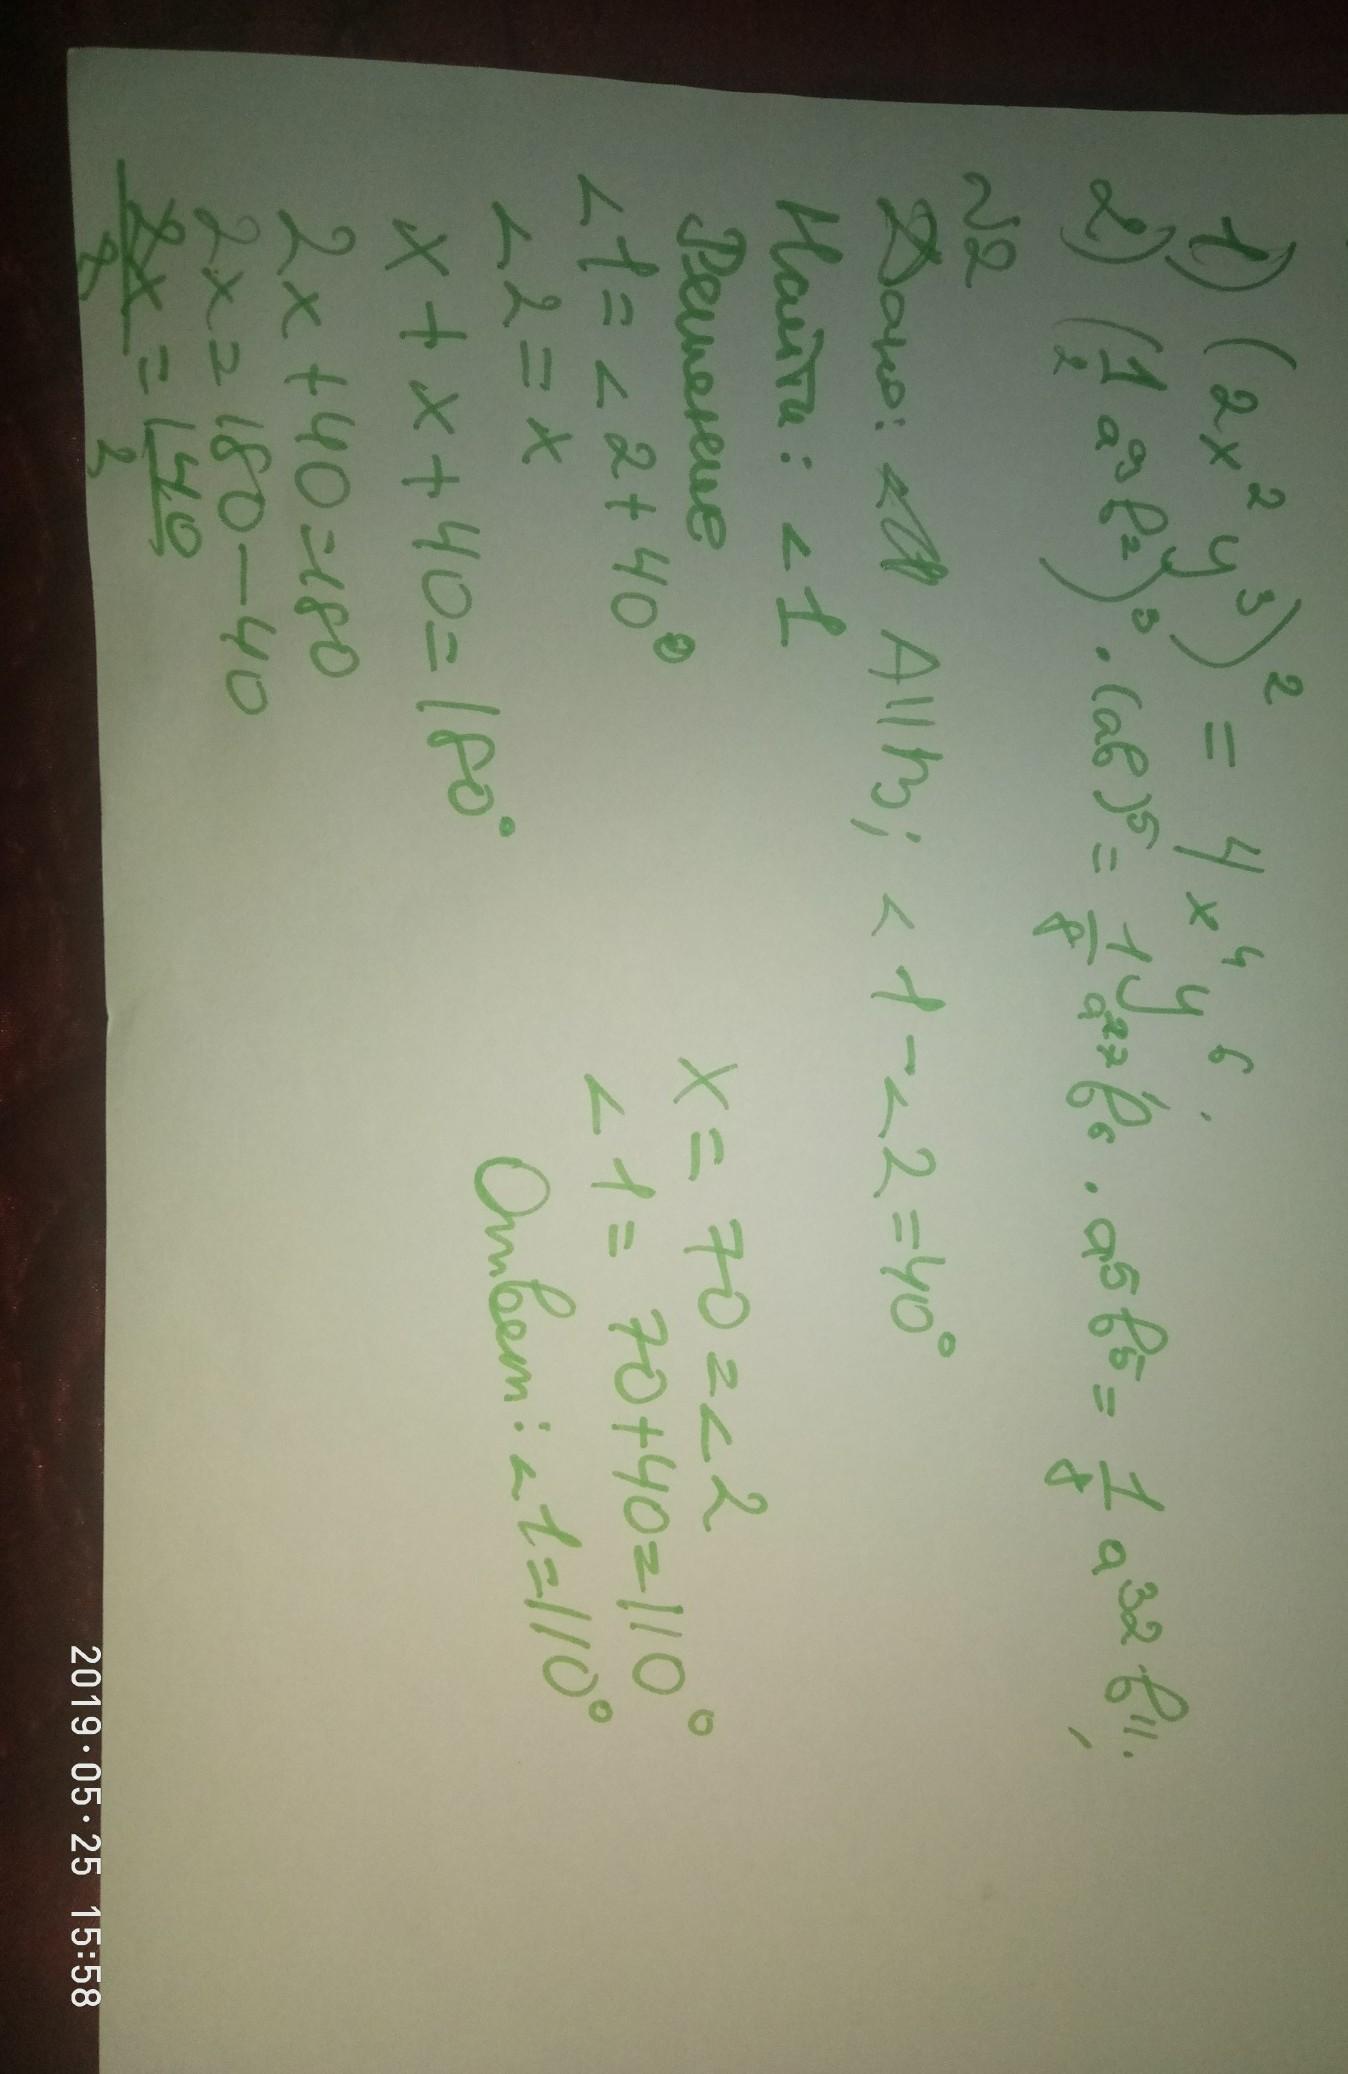 1) (2x²y³)² = 4x⁴y⁶.
2) (1/2 a⁹b²)³ · (ab)⁵ = 1/8 a²⁷b⁶ · a⁵b⁵ = 1/8 a³²b¹¹.
№2
Дано: A||B; <1-<2=40°
Найти: <1
Решение
<1=<2+40°
<2=x
x+x+40=180°
2x+40=180
2x=180-40
2x/2=140/2
x=70=<2
<1=70+40=110°
Ответ: <1=110°
2019.05.25 15:58